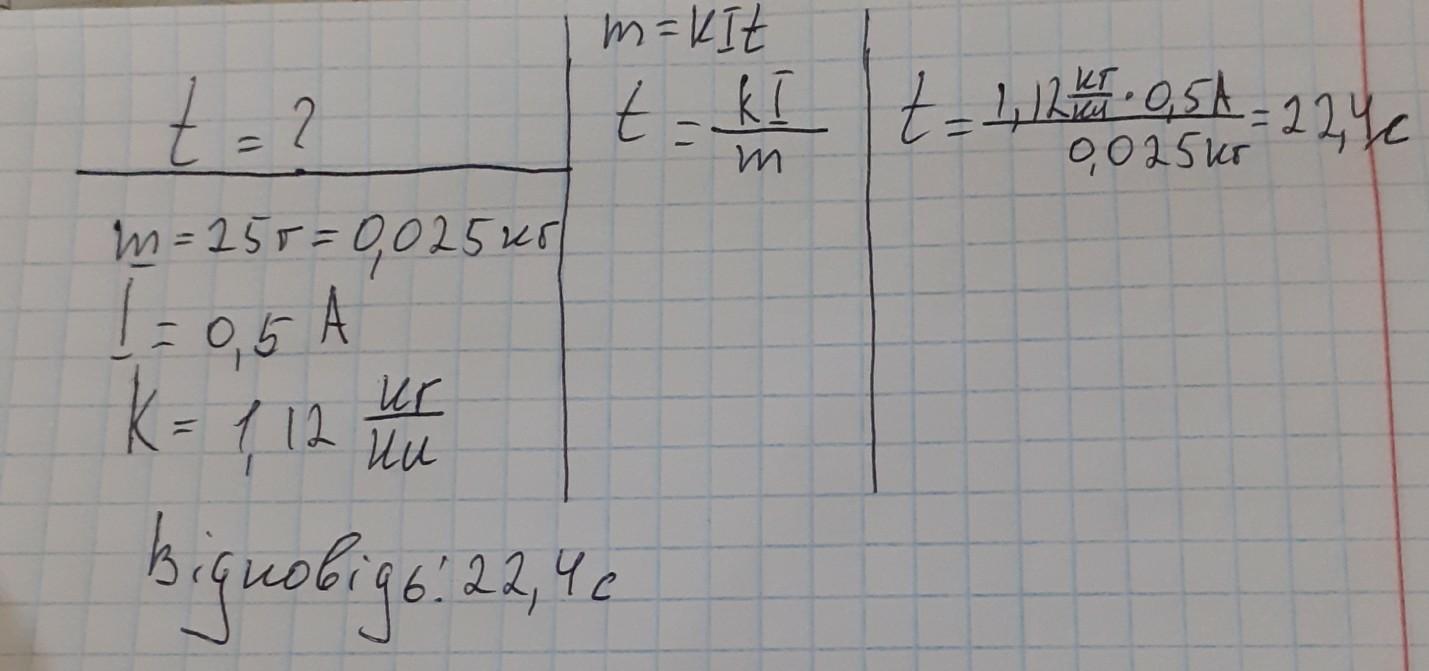 t = ?
m = 25г = 0,025кг
I = 0,5 А
k = 1,12 кг/Кл
m = kIt
t = kI/m
t = 1,12 кг/Кл · 0,5А / 0,025кг = 22,4с
Відповідь: 22,4с